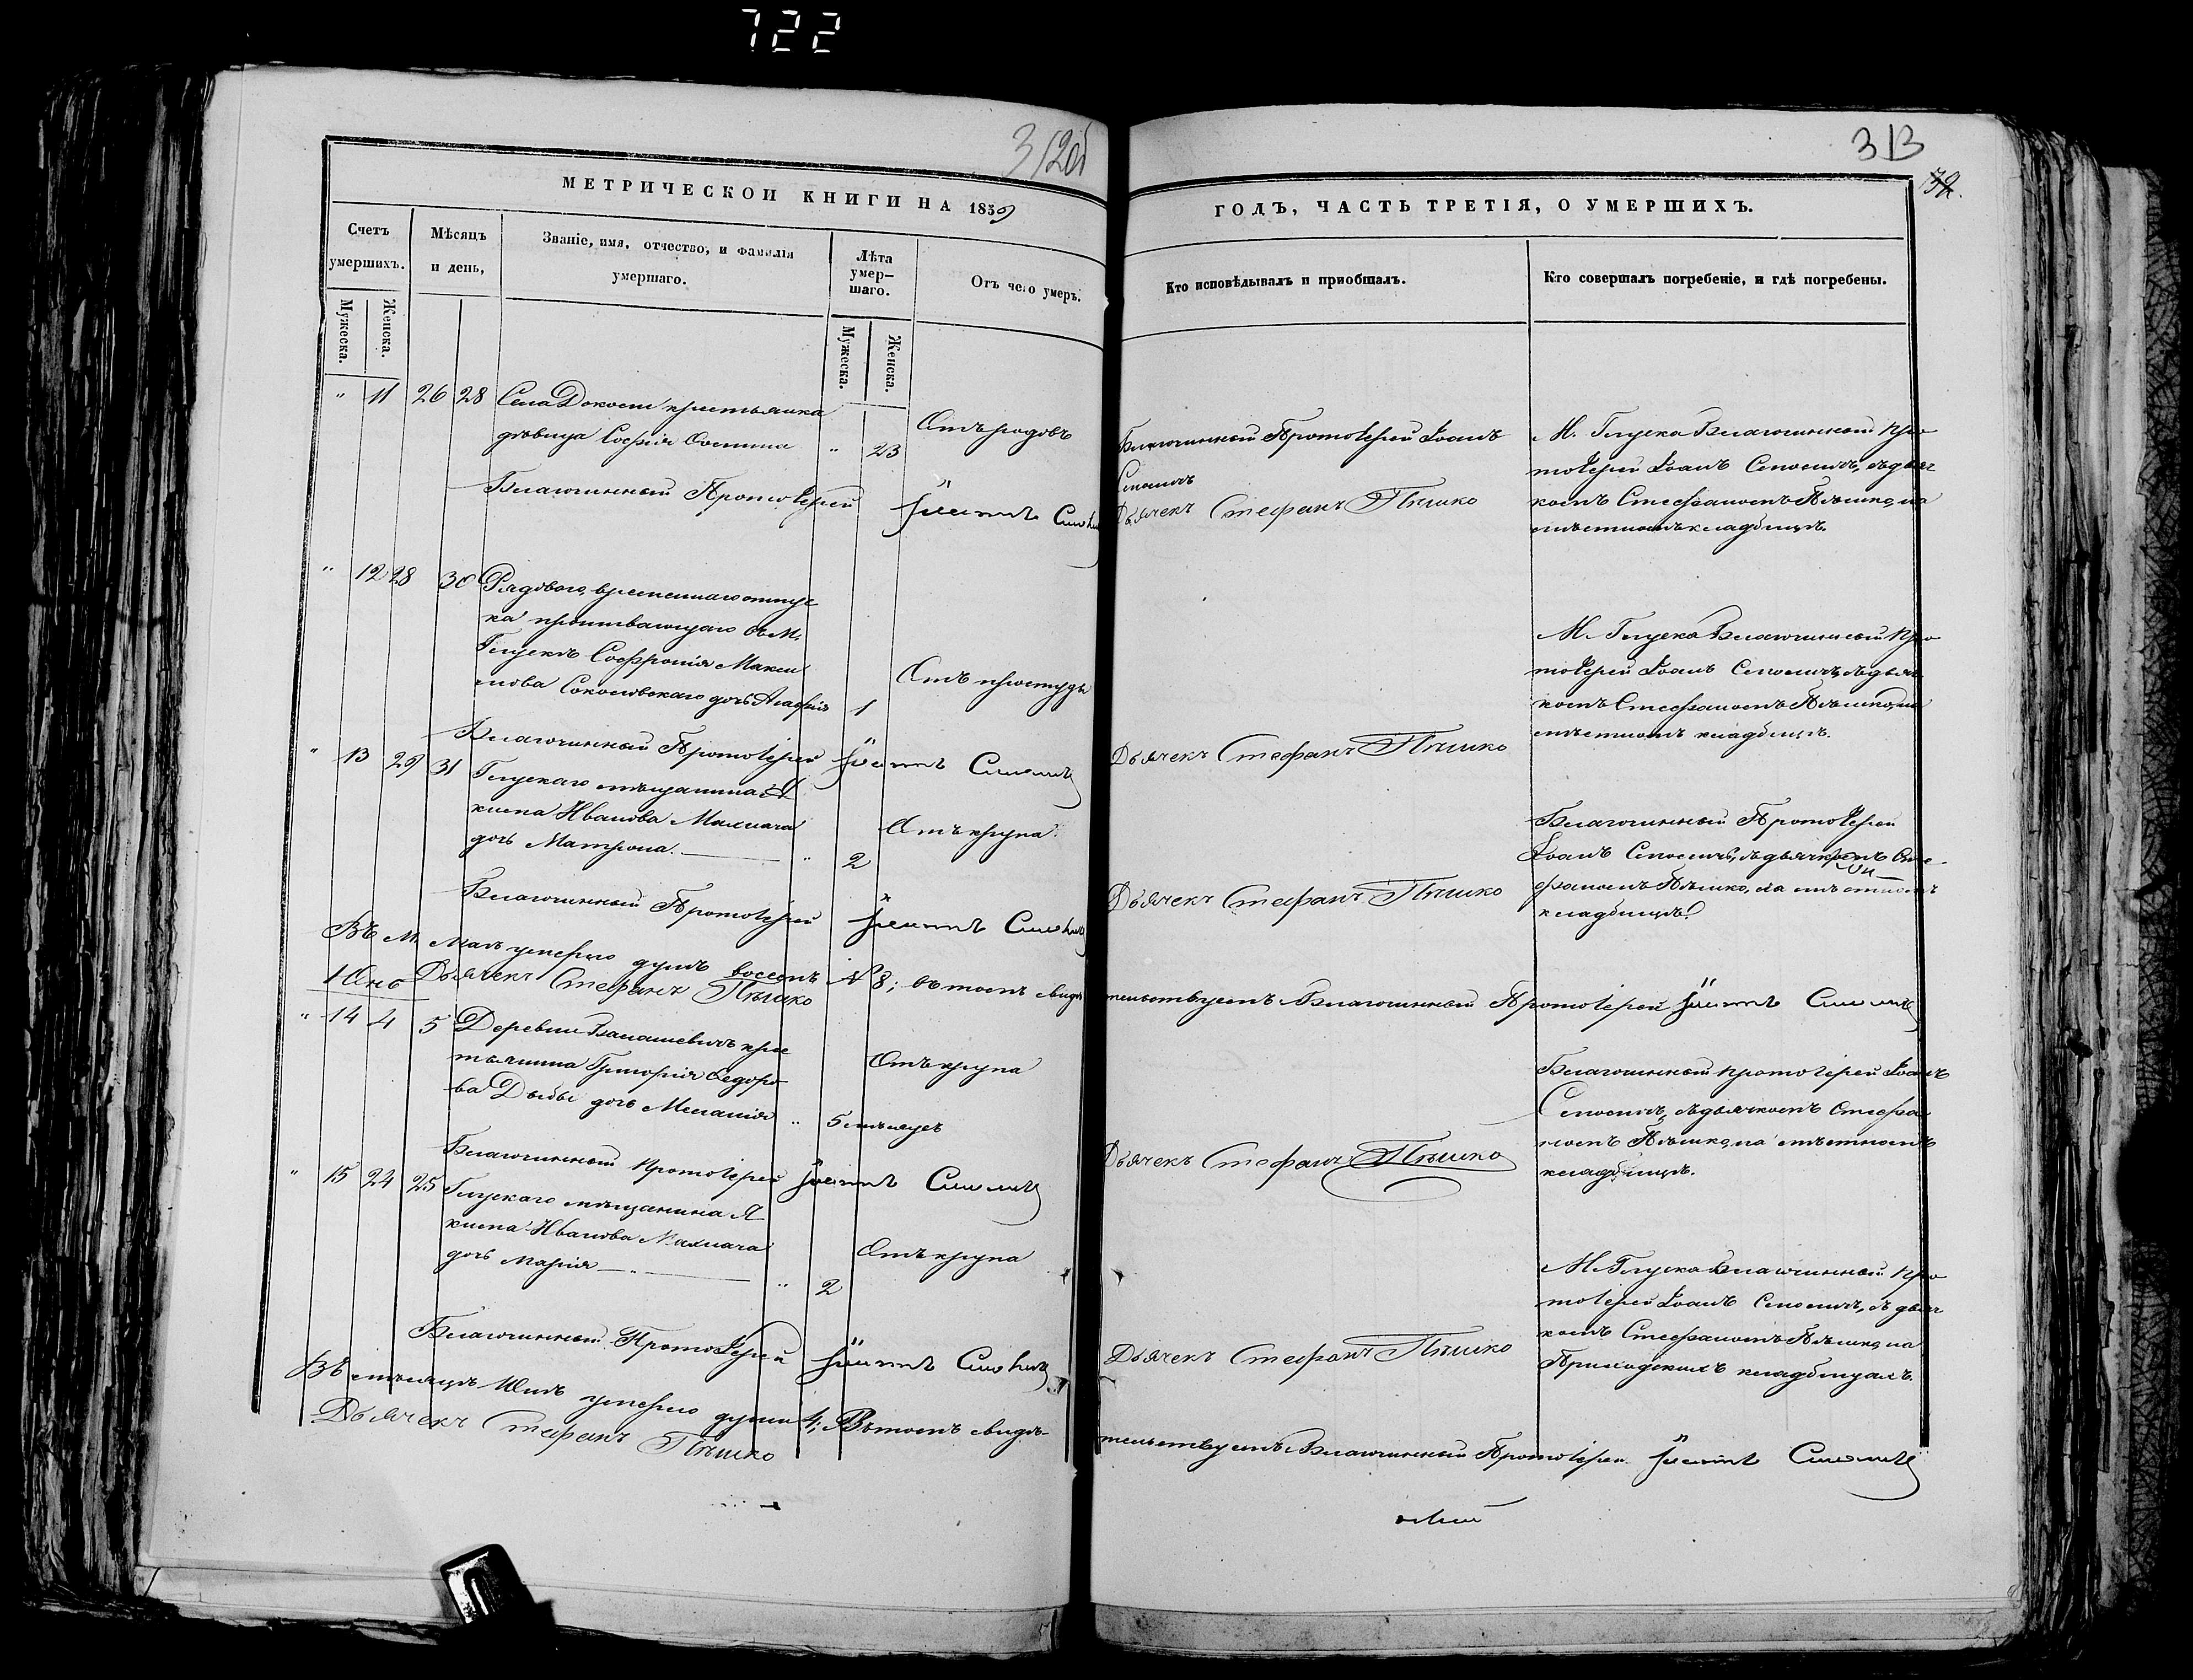 722
312об
313
32.
МЕТРИЧЕСКОЙ КНИГИ НА 1859
ГОДЪ, ЧАСТЬ ТРЕТІЯ, О УМЕРШИХЪ.
Счетъ умершихъ.
Мѣсяцъ и день,
Званіе, имя, отчество, и фамилія умершаго.
Лѣта умер-
шаго.
Отъ чего умеръ.
Кто исповѣдывалъ и приобщалъ.
Кто совершалъ погребеніе, и гдѣ погребены.
Мужеска.
Женска.
Мужеска.
Женска.
" 11 26 28 Села крестьянка
дѣвица Софія " 23
Отъ родовъ
Благочинный Протоіерей Іоаннъ
Дьячекъ Стефанъ Пѣшко
М. Глуска Благочинный Про
тоіерей Іоаннъ съ дьяч
комъ Стефаномъ Пѣшко, на
мѣстномъ кладбищѣ.
Благочинный Протоіерей Іоаннъ
" 12 28 30 Рядоваго временнаго отпус
ка проживающаго въ М.
Глускѣ Софронія Макси
мова Соколовскаго дочь Агафія 1
Отъ простуды
М. Глуска Благочинный Про
тоіерей Іоаннъ съ дьяч
комъ Стефаномъ Пѣшко, на
мѣстномъ кладбищѣ.
Благочинный Протоіерей Іоаннъ
Дьячекъ Стефанъ Пѣшко
" 13 29 31 Глускаго мѣщанина Я
кима Иванова Махнача
дочь Матрона. " 2
Отъ крупа
Благочинный Протоіерей
Іоаннъ съ дьячкомъ Сте-
фаномъ Пѣшко, на мѣстномъ
кладбищѣ.
Благочинный Протоіерей Іоаннъ
Дьячекъ Стефанъ Пѣшко
Въ М. Маѣ умерло душъ восемь № 8; въ томъ свидѣ
тельствуетъ Благочинный Протоіерей Іоаннъ
Дьячекъ Стефанъ Пѣшко
Юнь
" 14 4 5 Деревни Балашевичъ крес
тьянина Григорія Ѳедоро-
ва Дыбы дочь Меланія " 5 мѣсяцъ
Отъ крупа
Благочинный протоіерей Іоаннъ
съ дьячкомъ Стефа
номъ Пѣшко, на мѣстномъ
кладбищѣ.
Благочинный протоіерей Іоаннъ
Дьячекъ Стефанъ Пѣшко
" 15 24 25 Глускаго мѣщанина Я
кима Иванова Махнача
дочь Марія " 2
Отъ крупа
М. Глуска Благочинный Про
тоіерей Іоаннъ съ дьяч
комъ Стефаномъ Пѣшко на
Приходскихъ кладбищахъ.
Благочинный Протоіерей Іоаннъ
Дьячекъ Стефанъ Пѣшко
Въ мѣсяцѣ Юнѣ умерло душъ 4; Въ томъ свидѣ-
тельствуетъ Благочинный Протоіерей Іоаннъ
Дьячекъ Стефанъ Пѣшко